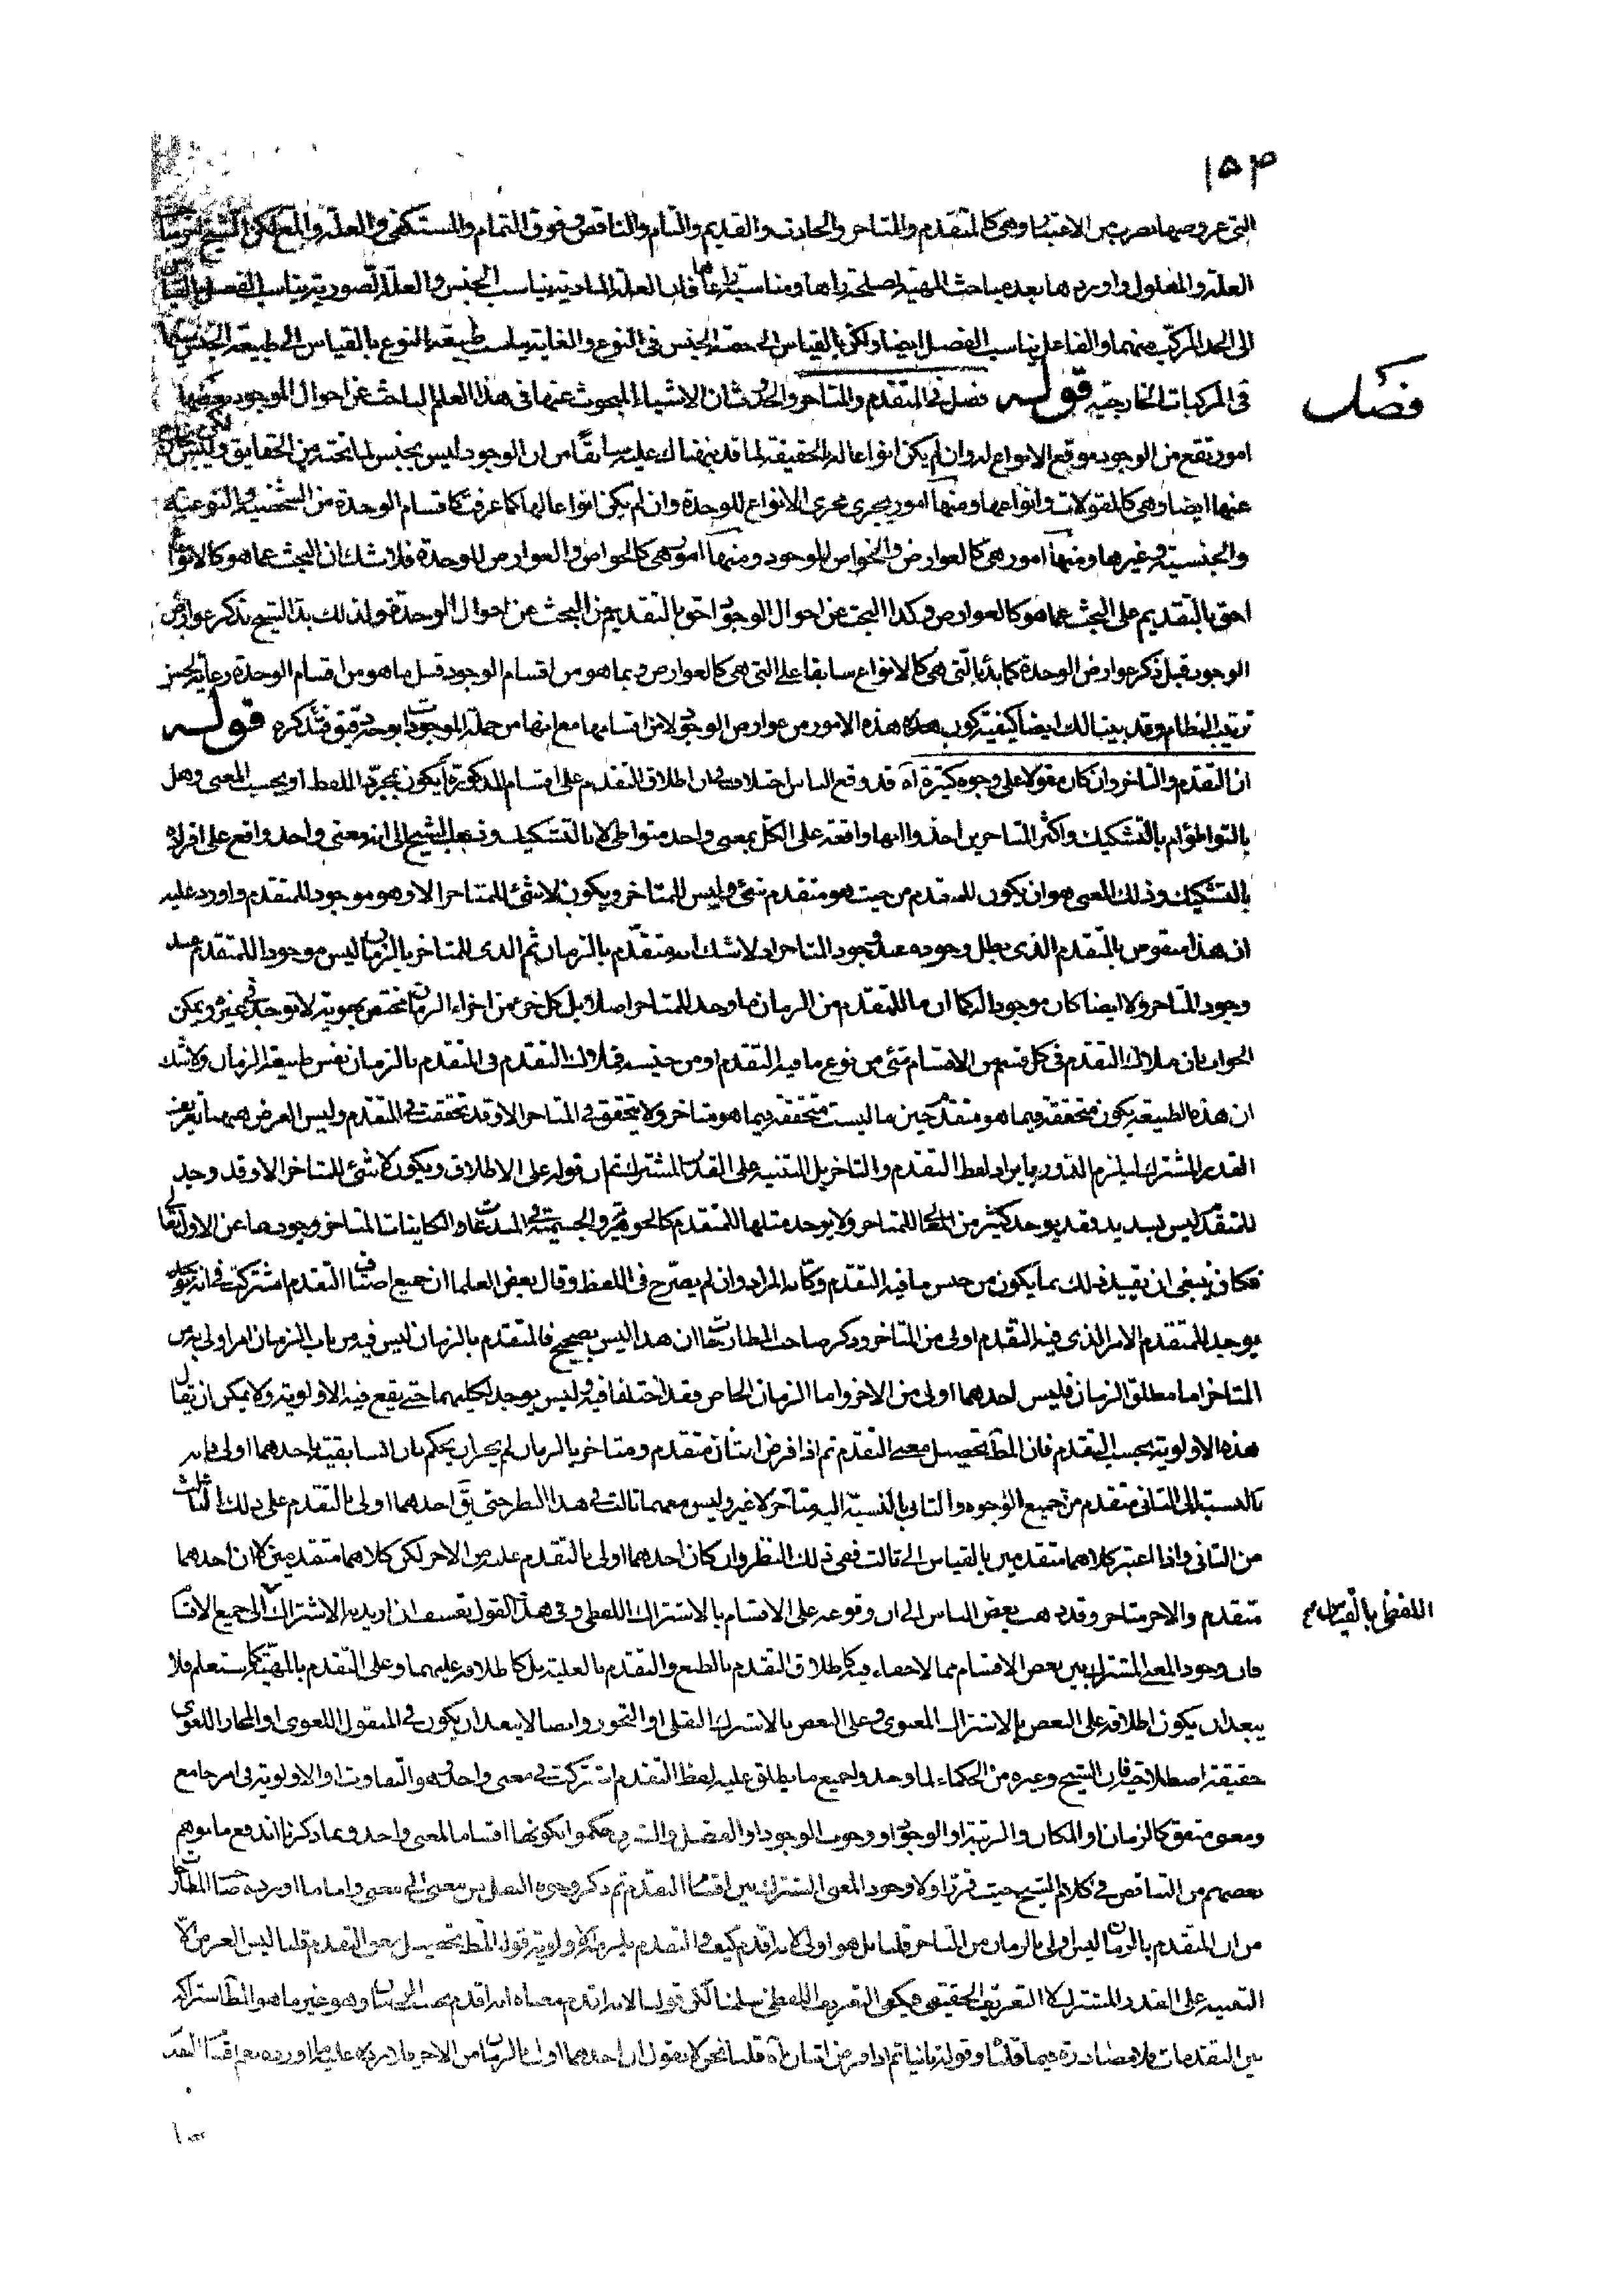 ١٥٣
التى عروضها بضرب من الاعتبار وهى كالمتقدم والمتاخر والحادث والقديم والتام والناقص وفوق التمام والمستكفى والعلة والمع لكن الشيخ
العلة والمعلول واوردها بعد مباحث المهية لصلحة راها ومناسبة راعاها فان العلة المادية يناسب الجنس والعلة الصورية يناسب الفصل بالقياس
الى الحد المركب منهما والفاعل يناسب الفصل ايضا ولكن بالقياس الى حصة الجنس فى النوع والغاية يناسب طبيعة النوع بالقياس الى طبيعة الجنس سيما
فصل
فى المركبات الخارجية قوله فصل فى المتقدم والمتاخر والحدوث ان الاشياء المبحوث عنها فى هذا العلم الباحث عن احوال الموجود بعضها
امور تقع من الوجود موقع الانواع له وان لم يكن انواعا له بالحقيقة لما قد نبهناك عليه سابقا من ان الوجود ليس بجنس لما تحته من الحقايق وليس
عنها ايضا وهى كالمقولات وانواعها ومنها امور يجرى مجرى الانواع للوحدة وان لم يكن انواعا لها كما عرفت كاقسام الوحدة من الشخصية والنوعية
والجنسية وغيرها ومنها امور هى كالعوارض والخواص للوجود ومنها امور هى كالخواص والعوارض للوحدة فلا شك ان البحث عما هو كالانواع
احق بالتقديم على البحث عما هو كالعوارض وكذا البحث عن احوال الوجود احق بالتقديم من البحث عن احوال الوحدة ولذلك بدا الشيخ بذكر عوارض
الوجود قبل ذكر عوارض الوحدة كما بدأ بالتى هى كالانواع سابقا على التى هى كالعوارض وبما هو من اقسام الوجود قبل ما هو من اقسام الوحدة رعاية لحسن
ترتيب النظام وقد بينا لك ايضا كيفية كون هذه الامور من عوارض الوجود لا من اقسامها مع انها من جملة الموجودات بوجه دقيق فتذكره قوله
ان التقدم والتاخر وان كان مقولا على وجوه كثيرة اه قد وقع للناس اختلاف فى ان اطلاق التقدم على اقسام المذكورة أيكون بمجرد اللفظ او بحسب المعنى وهل
بالتواطؤ ام بالتشكيك واكثر المتاخرين اخذوا انها واقعة على الكل بمعنى واحد متواطئ لا بالتشكيك وذهب الشيخ الى انه معنى واحد واقع على افراده
بالتشكيك وذلك المعنى هو ان يكون للمتقدم من حيث هو متقدم شئ وليس للمتاخر ويكون لا شئ للمتاخر الا وهو موجود للمتقدم واورد عليه
ان هذا منقوص بالمتقدم الذى بطل وجوده عند وجود المتاخر اذ لا شك انه متقدم بالزمان ثم الذى للمتاخر بالزمان ليس موجودا للمتقدم عند
وجود المتاخر ولا ايضا كان موجودا له كما ان ما للمتقدم من الزمان ما وجد للمتاخر اصلا بل كل جزء من اجزاء الزمان مختص بهوية لا توجد فى غيره ويمكن
الجواب بان ملاك التقدم فى كل قسم من الاقسام شئ من نوع ما فيه التقدم او من جنسه فملاك التقدم فى المتقدم بالزمان نفس طبيعة الزمان ولا شك
ان هذه الطبيعة يكون متحققة فيما هو متقدم حين ما ليست متحققة فيما هو متاخر ولا يتحقق فى المتاخر الا وقد تحققت فى المتقدم وليس الغرض ههنا تعريف
القدر المشترك ليلزم الدور بايراد لفظ التقدم والتاخر بل التنبيه على القدر المشترك ثم ان قوله على الاطلاق ويكون لا شئ للمتاخر الا وقد وجد
للمتقدم ليس بسديد فقد يوجد كثير من المعانى للمتاخر ولا يوجد مثلها للمتقدم كالجوهرية والجسمية فى المبدعات والكاينات المتاخر وجودها عن الاول تعالى
فكان ينبغى ان يقيد ذلك بما يكون من جنس ما فيه التقدم وكانه المراد وان لم يصرح فى اللفظ وقال بعض العلما ان جميع اصناف التقدم اشتركت فى انه يوجد
يوجد للمتقدم الامر الذى فيه التقدم اولى من المتاخر وذكر صاحب المطارحات ان هذا ليس بصحيح فالمتقدم بالزمان ليس فيه من باب الزمان امر اولى به من
المتاخر اما مطلق الزمان فليس احدهما اولى من الاخر واما الزمان الخاص فقد اختلفا فيه وليس يوجد لكليهما حتى يقع فيه الاولوية ولا يمكن ان يقال
هذه الاولوية بحسب التقدم فان المط تحصيل معنى التقدم ثم اذا فرض اثنان متقدم ومتاخر بالزمان لم يجز ان يحكم بان السابقية باحدهما اولى فانه
بالنسبة الى الثانى متقدم من جميع الوجوه والثانى بالنسبة اليه متاخر لا غير وليس معهما ثالث فى هذا النظر حتى يق احدهما اولى بالتقدم على ذلك الثالث
من الثانى واذا اعتبر كلاهما متقدمين بالقياس الى ثالث ففى ذلك النظر وان كان احدهما اولى بالتقدم عليه من الاخر لكن كلاهما متقدمين لا ان احدهما
متقدم والاخر متاخر وقد ذهب بعض الناس الى ان وقوعه على الاقسام بالاشتراك اللفظى وفى هذا القول تعسف اذا اريد به الاشتراك الى جميع الاقسام
اللفظى بالقياس
فان وجود المعنى المشترك بين بعض الاقسام مما لا خفاء فيه كاطلاق التقدم بالطبع والتقدم بالعلية بل كاطلاقه عليهما وعلى التقدم بالمهية كما ستعلم فلا
يبعد ان يكون اطلاقه على البعض بالاشتراك المعنوى وعلى البعض بالاشتراك النقلى او التجوز وايضا لا يبعد ان يكون فى المنقول اللغوى او المجاز اللغوى
حقيقة اصطلاحية فان الشيخ وغيره من الحكماء لما وجدوا جميع ما يطلق عليه لفظ التقدم اشتركت فى معنى واحد وهو التفاوت او الاولوية فى امر جامع
ومعنى متفق كالزمان او المكان والرتبة او الوجود او وجوب الوجود او الفضل والشرف حكموا بكونها اقساما لمعنى واحد وبما ذكرنا اندفع ما توهم
بعضهم من التناقض فى كلام الشيخ حيث قرر اولا وجود المعنى المشترك بين اقسام التقدم ثم ذكر وجوه النقل من معنى الى معنى واما ما اورده صاحب المطارحات
من ان المتقدم بالزمان ليس اولى بالزمان من المتاخر قلنا بل هو اولى لانه اقدم كيف والتقدم يلزمه الاولوية قوله المط تحصيل معنى التقدم قلنا ليس الغرض الا
التنبيه على القدر المشترك لا التعريف الحقيقى فيكفى التعريف اللفظى سلمنا لكن قولنا لانه اقدم معناه انه اقدم بحسب الزمان وهو غير ما هو المط اشتراكه
بين التقدمات فلا مصادرة فيما قلنا وقوله ثانيا ثم اذا فرض اثنان اه قلنا نحن لا نقول ان احدهما اولى بالزمان من الاخر